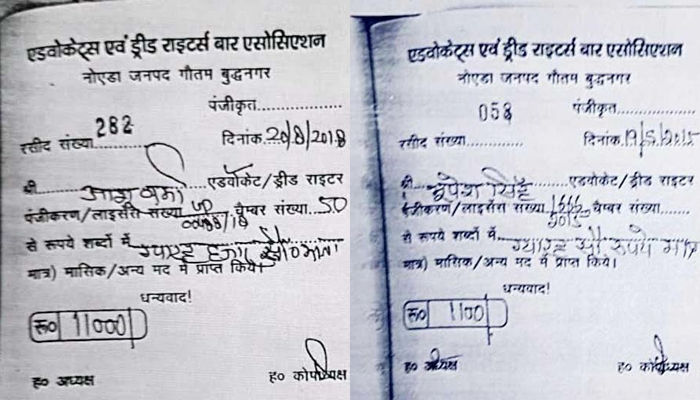 एडवोकेट्स एवं ड्रीड राइटर्स बार एसोसिएशन
नोएडा जनपद गौतम बुद्धनगर
पंजीकृत....................
रसीद संख्या 282 दिनांक 20/8/2018
श्री एडवोकेट/ड्रीड राइटर
पंजीकरण/लाइसेंस संख्या UP चैम्बर संख्या 50
से रूपये शब्दों में ग्यारह हजार
मात्र) मासिक/अन्य मद में प्राप्त किये।
धन्यवाद!
रू0 11000
ह0 अध्यक्ष ह0 कोषाध्यक्ष
एडवोकेट्स एवं ड्रीड राइटर्स बार एसोसिएशन
नोएडा जनपद गौतम बुद्धनगर
058 पंजीकृत....................
रसीद संख्या.............. दिनांक 19/5/2015
श्री सिंह एडवोकेट/ड्रीड राइटर
पंजीकरण/लाइसेंस संख्या चैम्बर संख्या.......
से रूपये शब्दों में ग्यारह सौ रूपये मात्र
मात्र) मासिक/अन्य मद में प्राप्त किये।
धन्यवाद!
रू0 1100
ह0 अध्यक्ष ह0 कोषाध्यक्ष